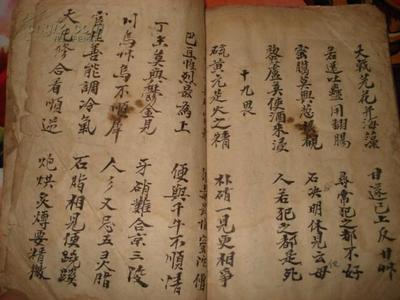 大戟芫花并海藻
甘遂已上反甘草
若還吐蠱用翻腸
尋常犯之都不好
蜜臘莫與葱根觀
石決明休見云母
藜蘆莫使酒來浸
人若犯之都是死
十九畏
硫黃元是火之精
朴硝一見更相爭
巴豆性烈最為上
便與牛不順情
丁香莫與鬱金見
牙硝難合京三陵
川烏草烏不順犀
人參又忌五灵脂
官桂善能調冷氣
石脂相見便蹺蹊
大凡修合看順逆
炮烘炙煿要精微